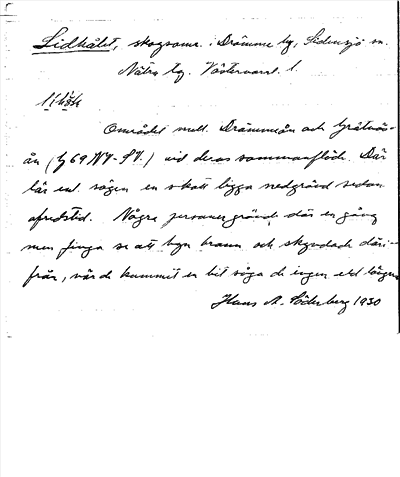 Lidhålet, skogsomr. Drömme by, Sidensjö sn.
Nätra tg. Västernorrl. l.
Området mell. Drömmeån och
ån (f 69 NV - SV.) vid deras sammanflöde. Där
lär enl. sägen en skatt ligga nedgrävd sedan
ofredstid. Några personer grävde där en gång
men finga se att byn brann och skyndade däri-
från, när de kommit en bit såga de ingen eld längre.
Hans A. Söderberg 1930